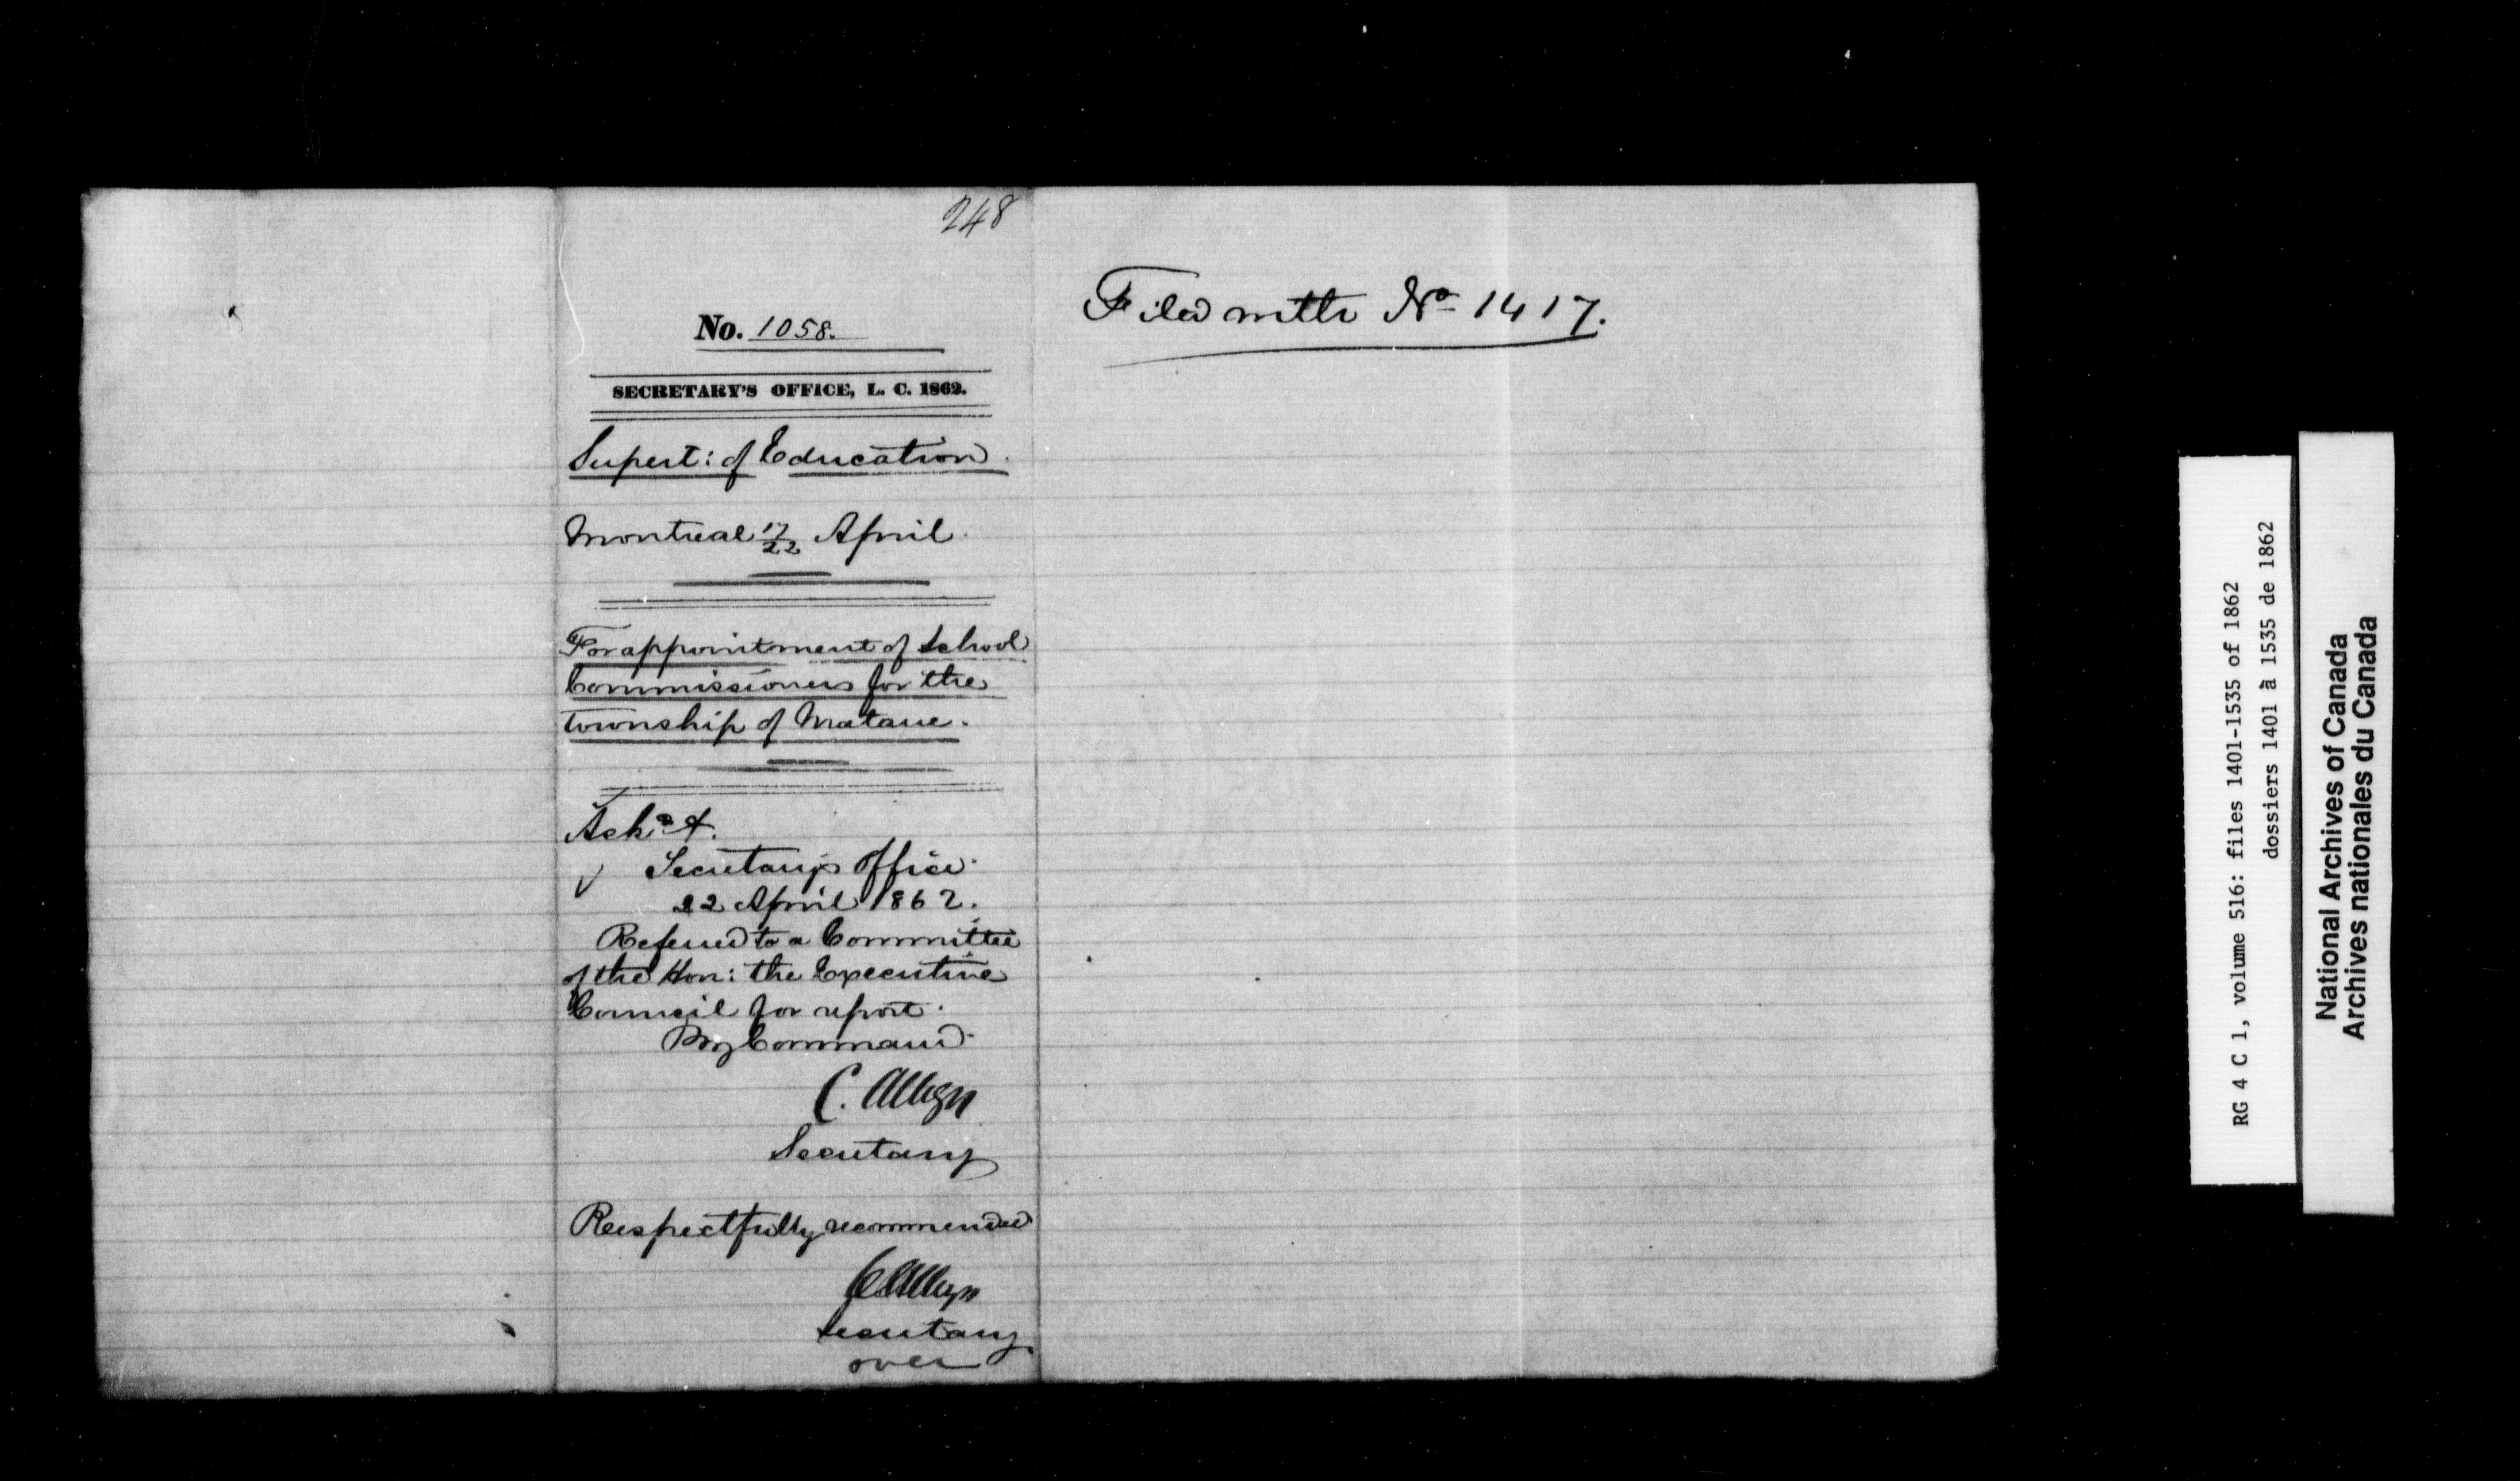 248
No. 1058.
SECRETARY'S OFFICE, L. C. 1862.
Supert: of Education.
Montreal 17/22 April.
For appointment of School
Commissioners for the
Township of Matane.
Ackd
Secretary's Office
22 April 1862.
Referred to a Committee
of the Hon: the Executive
Council for report.
By Command.
C. Alleyn
Secretary
Respectfully recommended
C Alleyn
Secretary
over
Filed with No 1417.
RG 4 C 1, volume 516: files 1401-1535 of 1862
dossiers 1401 à 1535 de 1862
National Archives of Canada
Archives nationales du Canada